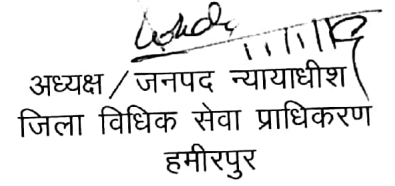 अध्यक्ष / जनपद न्यायाधीश
जिला विधिक सेवा प्राधिकरण
हमीरपुर